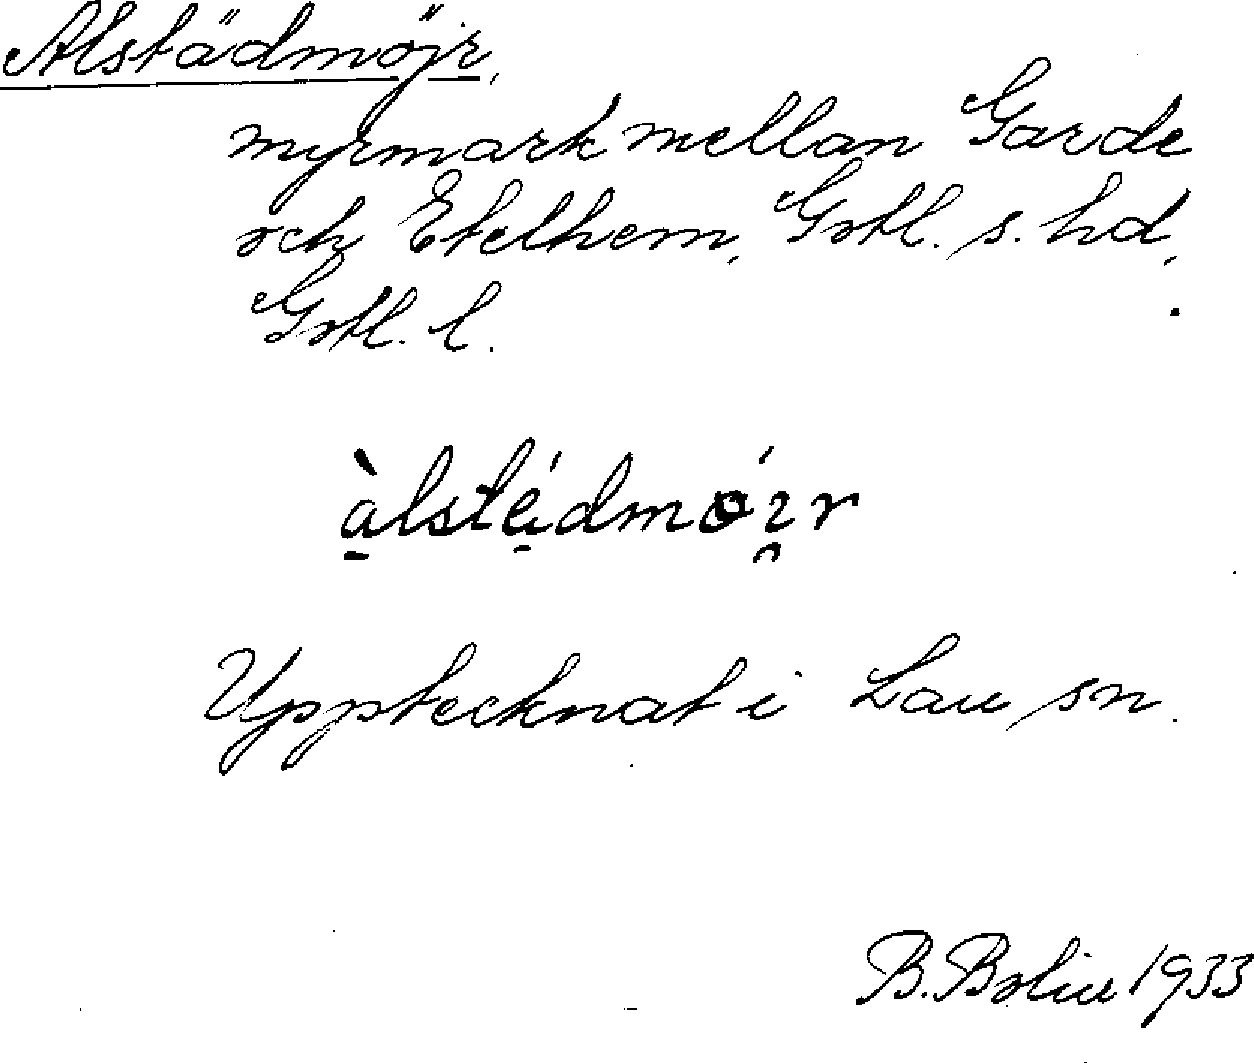 Alstädmöjr,
myrmark mellan Garde
och Etelhem, Gotl. s. hd,
Gotl. l.
àlstédmóir
Upptecknat i Lau sn.
B. Bolin 1933